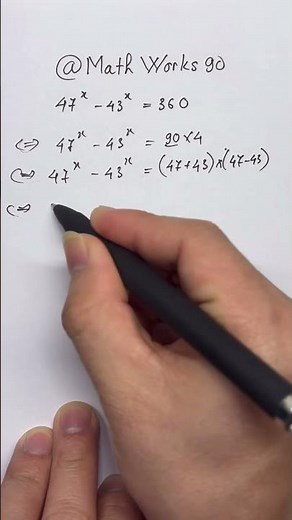 @Math Works 90
47^x - 43^x = 360
⇔ 47^x - 43^x = 90 × 4
⇔ 47^x - 43^x = (47+43)×(47-43)
⇔